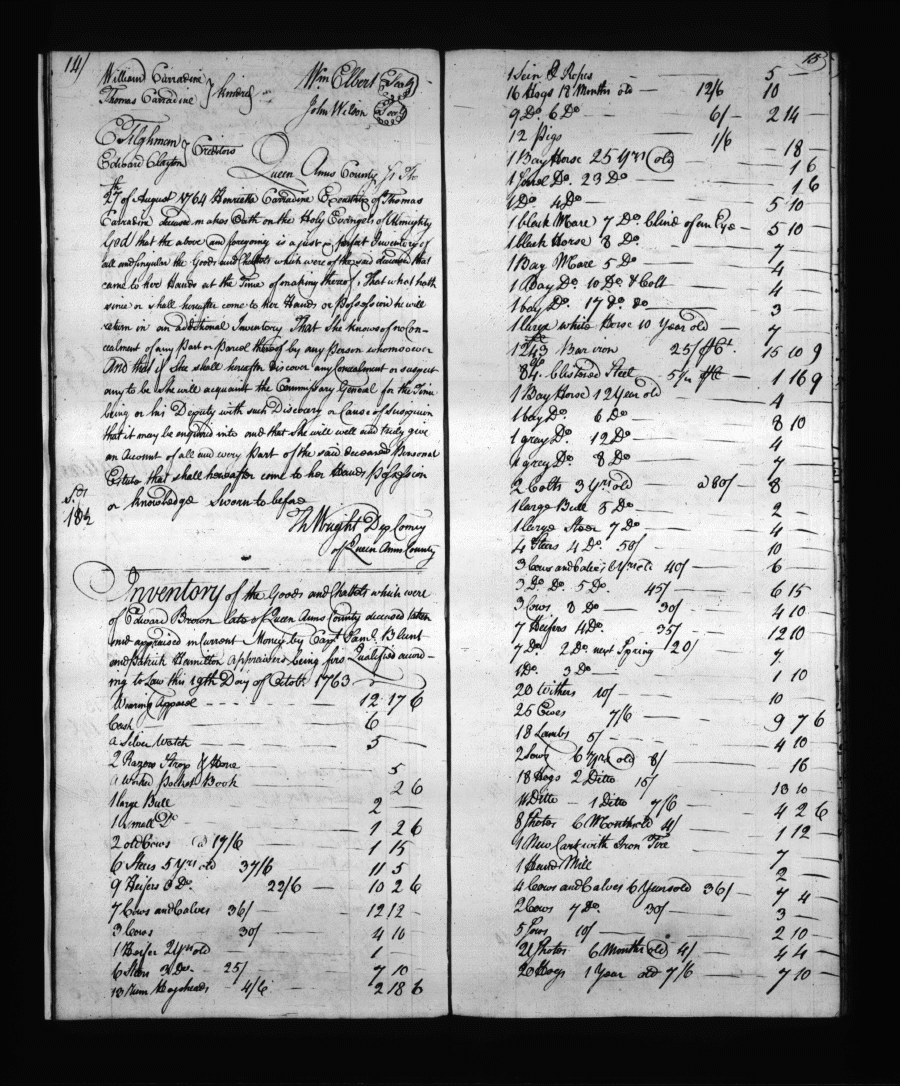 14/
William Carradine
Thomas Carradine } kindred
Wm Elbert (Seal)
John Wilson (Seal)
E Tilghman
Edward Clayton } Creditors
Queen Anns County Ss The
27th of August 1764 Henrietta Carradine Executrix of Thomas
Carradine deceased makes Oath on the Holy Evangels of Almighty
God that the above and foregoing is a just and perfect Inventory of
all and singular the Goods and Chattels which were of the said deceased that
came to her Hands at the Time of making thereof, That what hath
since or shall hereafter come to her Hands or Possession she will
return in an additional Inventory That she knows of no Con-
cealment of any Part or Parcel thereof by any Person whomsoever
And that if she shall hereafter discover any Concealment or suspect
any to be she will acquaint the Commissary General for the Time
being or his Deputy with such Discovery or Cause of Suspicion
that it may be enquired into and that she will well and truly give
an Account of all and every Part of the said deceased Personal
Estate that shall hereafter come to her Hands Possession
or knowledge Sworn to before
Th Wright Dep Comry
of Queen Anns County
Inventory of the Goods and Chattels which were
of Edward Brown late of Queen Anns County deceased taken
and appraised in Current Money by Capt Saml. Blunt
and Patrick Hamilton appraisers being first Qualified accord-
ing to Law this 19th Day of Octobr. 1763
Wearing Apparel - - - - 12 17 6
Cash 6
a Silver Watch 5 —
2 Razors Strop & Hone 5
a worked Pocket Book 2 6
1 large Bull 2 —
1 small Do 1 2 6
2 old Cows @ 17/6 1 15
6 Steers 5 Yrs old 37/6 11 5
9 Heifers 3 Do. 22/6 — 10 2 6
7 Cows and Calves 36/ 12 12 —
3 Cows 30/ 4 10
1 Heifer 2 Yrs old 1 —
6 Steers 3 Do. 25/ 7 10
13 Rum Hogsheads 4/6 2 18 6
15
1 Sein & Ropes 5 —
16 Hogs 18 Months old 12/6 10
9 Do. 6 Do 6/ 2 14 —
12 Pigs 1/6 18 —
1 Bay Horse 25 Yrs old 1 6
1 Sorrel Do. 23 Do 1 6
1 Do. 4 Do 5 10
1 black Mare 7 Do. blind of an Eye 5 10 —
1 black Horse 8 Do. 7
1 Bay Mare 5 Do 4 —
1 Bay Do. 10 Do & Colt 4
1 bay Do. 17 Do. Do 3 —
1 large white Horse 10 Year old 7
1243 Bar iron 25/ 15 10 9
84 blistered Steel 1 16 9
1 Bay Horse 12 Year old 4
1 bay Do. 6 Do 8 10
1 gray Do. 12 Do 4
1 grey Do. 8 Do 7
2 Colts 3 Yrs old @ 80/ 8
1 large Bull 8 Do 2 —
1 large Steer 7 Do 4
4 Steers 4 Do. 50/ 10
3 Cows and Calves 40/ 6
3 Do. Do. 5 Do. 45/ 6 15
3 Cows 8 Do 30/ 4 10
7 Heifers 4 Do. 35/ 12 10
7 Do 2 Do next Spring 20/ 7
1 Do. 3 Do 1 10
20 Withers 10/ 10
25 Ewes 7/6 9 7 6
18 Lambs 5/ 4 10
2 Sows 6 Yrs old 8/ 16
18 Hogs 2 Ditto 15/ 13 10
11 Ditto 1 Ditto 7/6 4 2 6
8 Shotes 6 Months old 4/ 1 12
1 New Cart with Iron Tire 7
1 Hand Mill 2 —
4 Cows and Calves 6 Years old 36/ 7 4
2 Cows 7 Do. 30/ 3 —
5 Sows 10/ 2 10
21 Shotes 6 Months old 4/ 4 4
20 Hogs 1 Year old 7/6 7 10